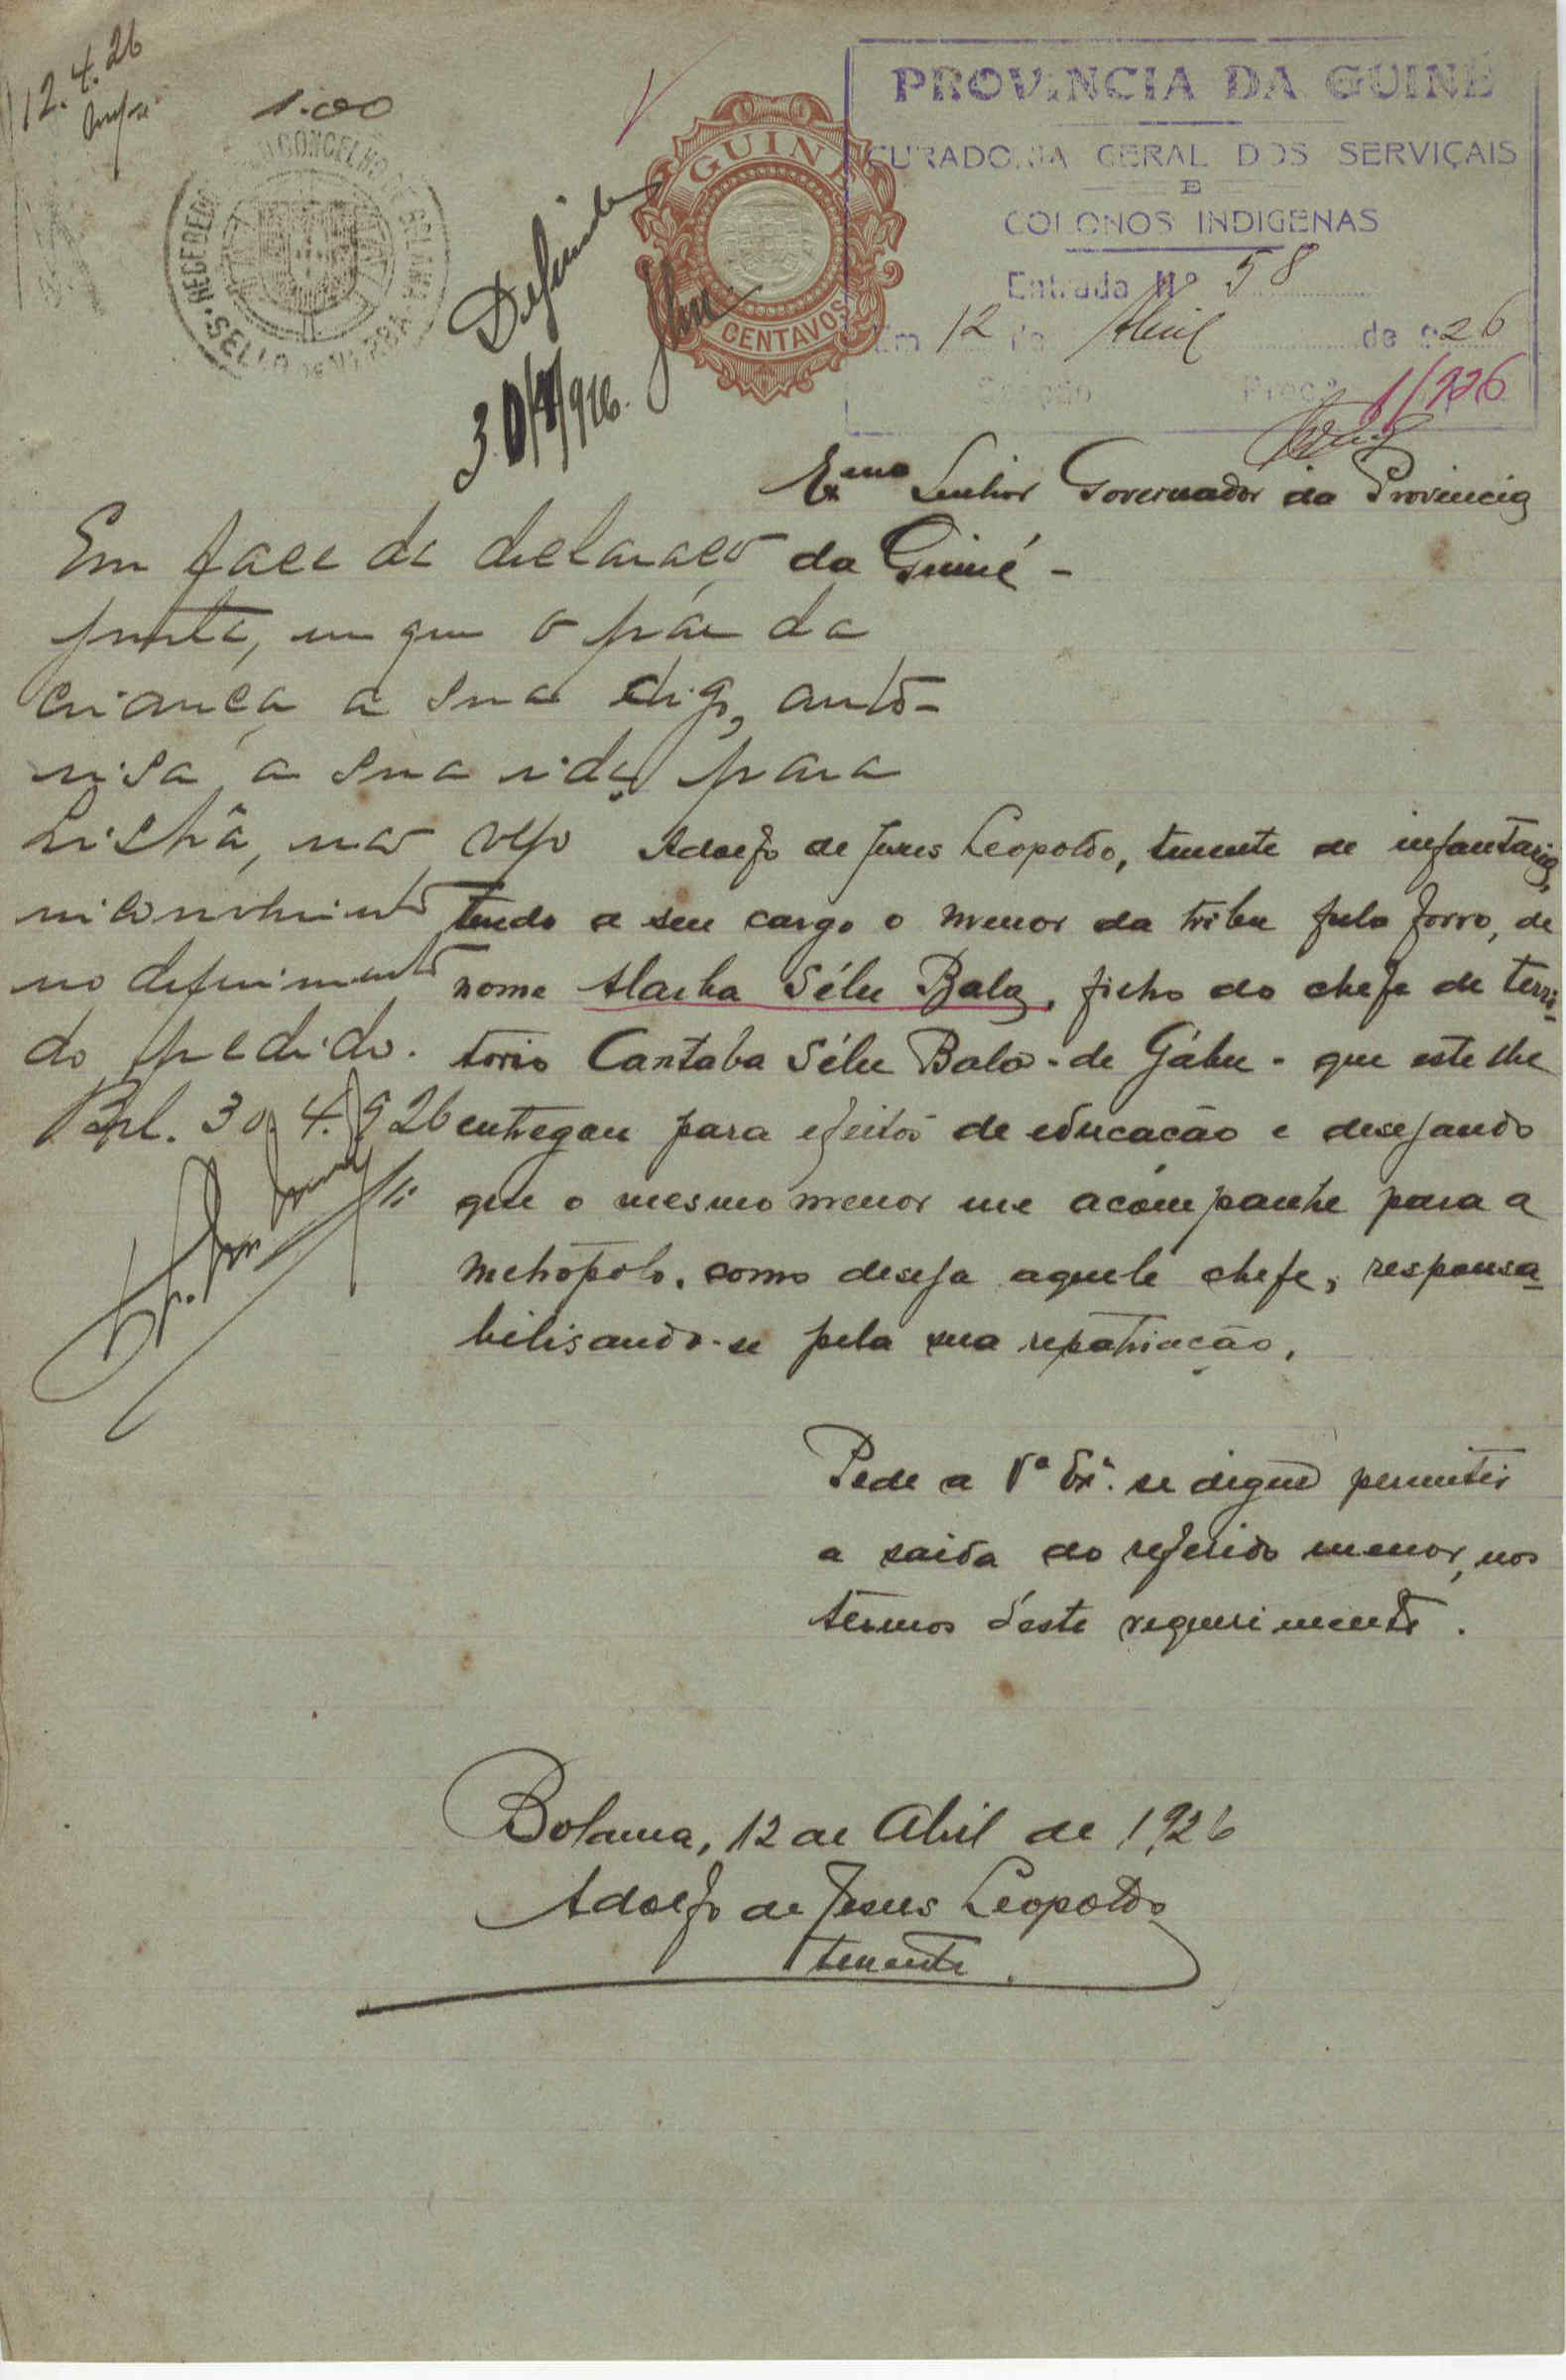 12.4.26
1.00
RECEBEDORIA DO CONCELHO DE BOLAMA
SELLO DE VERBA
Deferido
30/4/926.
GUINÉ
CENTAVOS
PROVINCIA DA GUINÉ
CURADORIA GERAL DOS SERVIÇAIS
E
COLONOS INDIGENAS
Entrada Nº 58
Em 12 de Abril de 926
Secção Proc.º 1/926
Exmo Senhor Governador da Provincia
da Guiné -
Em face da declaração
junta, em que o pái da
criança a sua digo, auto-
risa a sua ida para
Lisbôa, não vejo
inconveniente
no deferimento
do pedido.
Bol. 30.4.926
Adolfo de Jesus Leopoldo, tenente de infantaria,
tendo a seu cargo o menor da tribu fula forro, de
nome Alarba Sélu Baló, filho do chefe de terri-
torio Cantaba Sélu Baló - de Gábu - que este lhe
entregou para efeitos de educação e desejando
que o mesmo menor me acompanhe para a
metropole, como deseja aquele chefe, responsa-
bilisando-se pela sua repatriação,
Pede a Vª Exª. se digne permitir
a saida do referido menor, nos
termos d'este requerimento.
Bolama, 12 de Abril de 1926
Adolfo de Jesus Leopoldo
tenente.